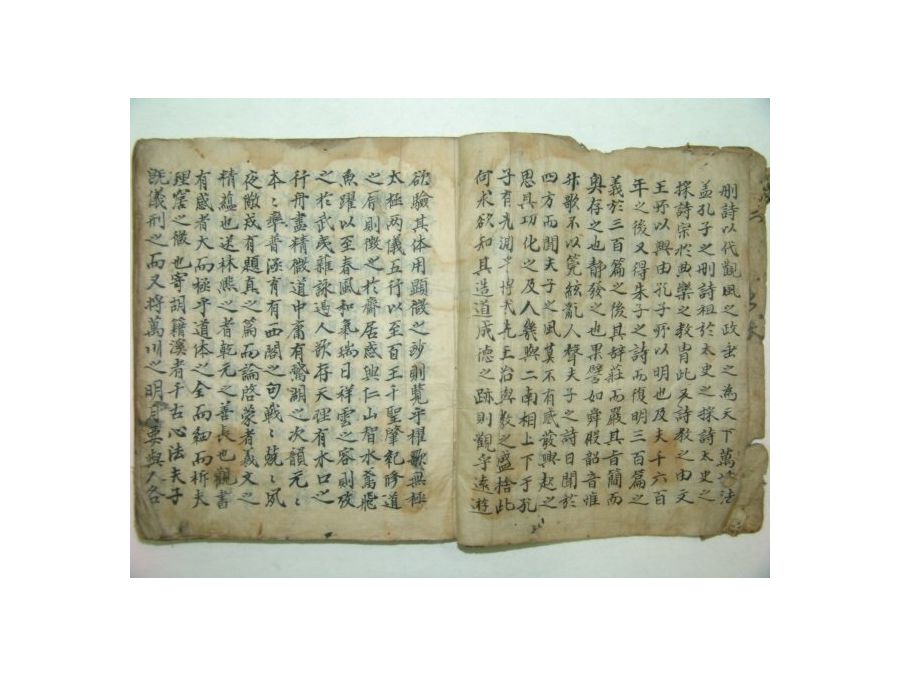 刪詩以代觀風之政垂之為天下萬世法
盖孔子之刪詩祖於太史之採詩太史之
採詩宗於典樂之教胄此又詩教之由文
王所以興由孔子所以明也及夫千六百
年之後又得朱子之詩而復明三百篇之
義於三百篇之後其辭莊而嚴其旨簡而
奧存之也靜發之也果譬如舜殷韶音惟
非歌不以筦絃亂人聲夫子之詩日聞於
四方而聞夫子之風莫不有感發興起之
思具功化之及人幾與二南相上下于孔
子有光測乎博我先王治與教之盛捨此
何求欲知其造道成德之跡則觀乎遠遊
欲驗其体用顯微之妙則覽乎櫂歌無極
太極兩儀五行以至百王千聖肇紀修道
之旨則徵之於齋居感興仁山智水鳶飛
魚躍以至春風和氣瑞日祥雲之容則攷
之於武夷雜詠遏人欲存天理有水口之
行舟盡精微道中庸有鵞湖之次韻元〻
本〻舉普涵有西閣之句戰〻兢〻夙
夜敬戒有題真之篇而論啓蒙者羲文之
精蘊也送林熙之者乾元之善長也觀書
有感者大而極乎道体之全而細而析夫
理窟之微也寄胡籍溪者千古心法夫子
旣儀刑之而又將萬川之明月要與人名